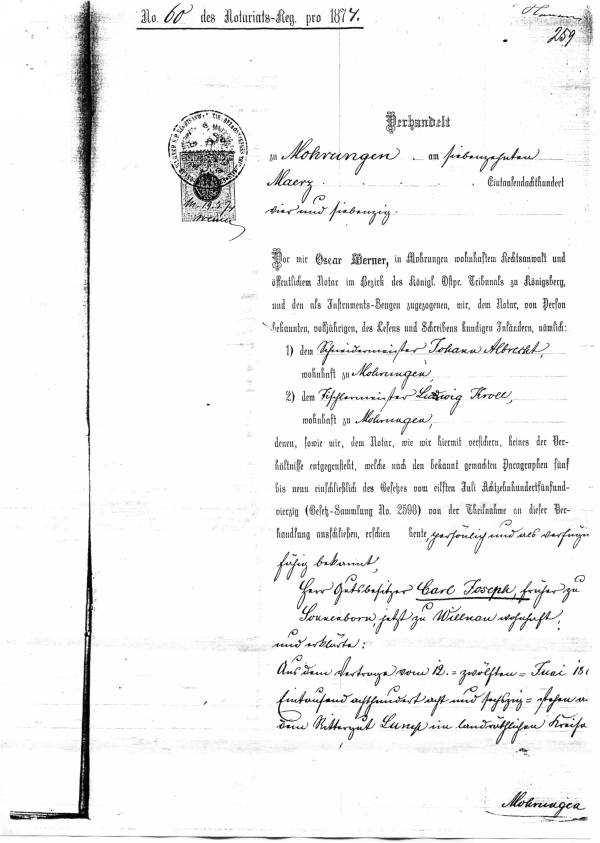 No. 60 des Notariats-Reg. pro 1874.
259
Verhandelt
zu Mohrungen am siebenzehnten
Maerz Eintausendachthundert
vier und siebenzig.
Vor mir Oscar Werner, in Mohrungen wohnhaftem Rechtsanwalt und
öffentlichem Notar im Bezirk des Königl. Ostpr. Tribunals zu Königsberg,
und den als Instruments-Zeugen zugezogenen, mir, dem Notar, von Person
bekannten, volljährigen, des Lesens und Schreibens kundigen Inländern, nämlich:
1) dem Schneidermeister Johann Albrecht,
wohnhaft zu Mohrungen,
2) dem Tischlermeister Ludwig Kroll,
wohnhaft zu Mohrungen,
denen, sowie mir, dem Notar, wie wir hiermit versichern, keines der Ver-
hältnisse entgegensteht, welche nach den bekannt gemachten Paragraphen fünf
bis neun einschließlich des Gesetzes vom eilften Juli Achtzehnhundertfünfund-
vierzig (Gesetz-Sammlung No. 2598) von der Theilnahme an dieser Ver-
handlung ausschließen, erschien heute, persönlich und als verfügungs
fähig bekannt,
Herr Gutsbesitzer Carl Joseph, früher zu
Sonnenborn, jetzt zu Willnau wohnhaft,
und erklärte:
Aus dem Vertrage vom 12. = zwölften = Juni 18
Eintausend achthundert acht und sechszig = stehen a
dem Rittergut im landräthlichen Kreise
Mohrungen